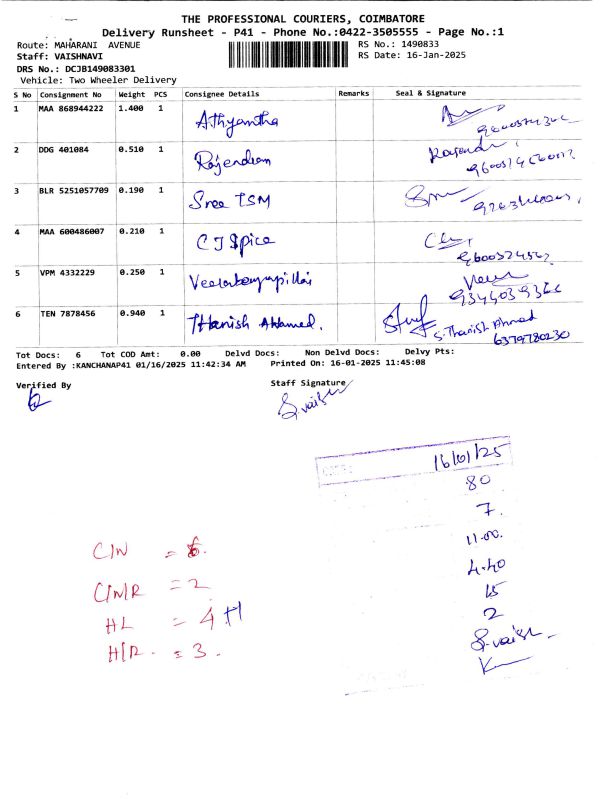 THE PROFESSIONAL COURIERS, COIMBATORE
Delivery Runsheet - P41 - Phone No.:0422-3505555 - Page No.:1
Route: MAHARANI AVENUE RS No.: 1490833
Staff: VAISHNAVI RS Date: 16-Jan-2025
DRS No.: DCJB149083301
Vehicle: Two Wheeler Delivery
S No Consignment No Weight PCS Consignee Details Remarks Seal & Signature
1 MAA 868944222 1.400 1 Athyantha
2 DDG 401084 0.510 1 Rajendran Rajendr
3 BLR 5251057709 0.190 1 Sree TSM
4 MAA 600486007 0.210 1 CJ Spice
5 VPM 4332229 0.250 1
6 TEN 7878456 0.940 1 Thanish Ahamed. S. Thanish Ahmed
6379780230
Tot Docs: 6 Tot COD Amt: 0.00 Delvd Docs: Non Delvd Docs: Delvy Pts:
Entered By :KANCHANAP41 01/16/2025 11:42:34 AM Printed On: 16-01-2025 11:45:08
Verified By Staff Signature
S.vaish
16/01/25
80
7.
11.00.
4.40
15
2
S.vaish
C/N = 6.
C/N/R = 2
HL = 4 +1
H/R. = 3.